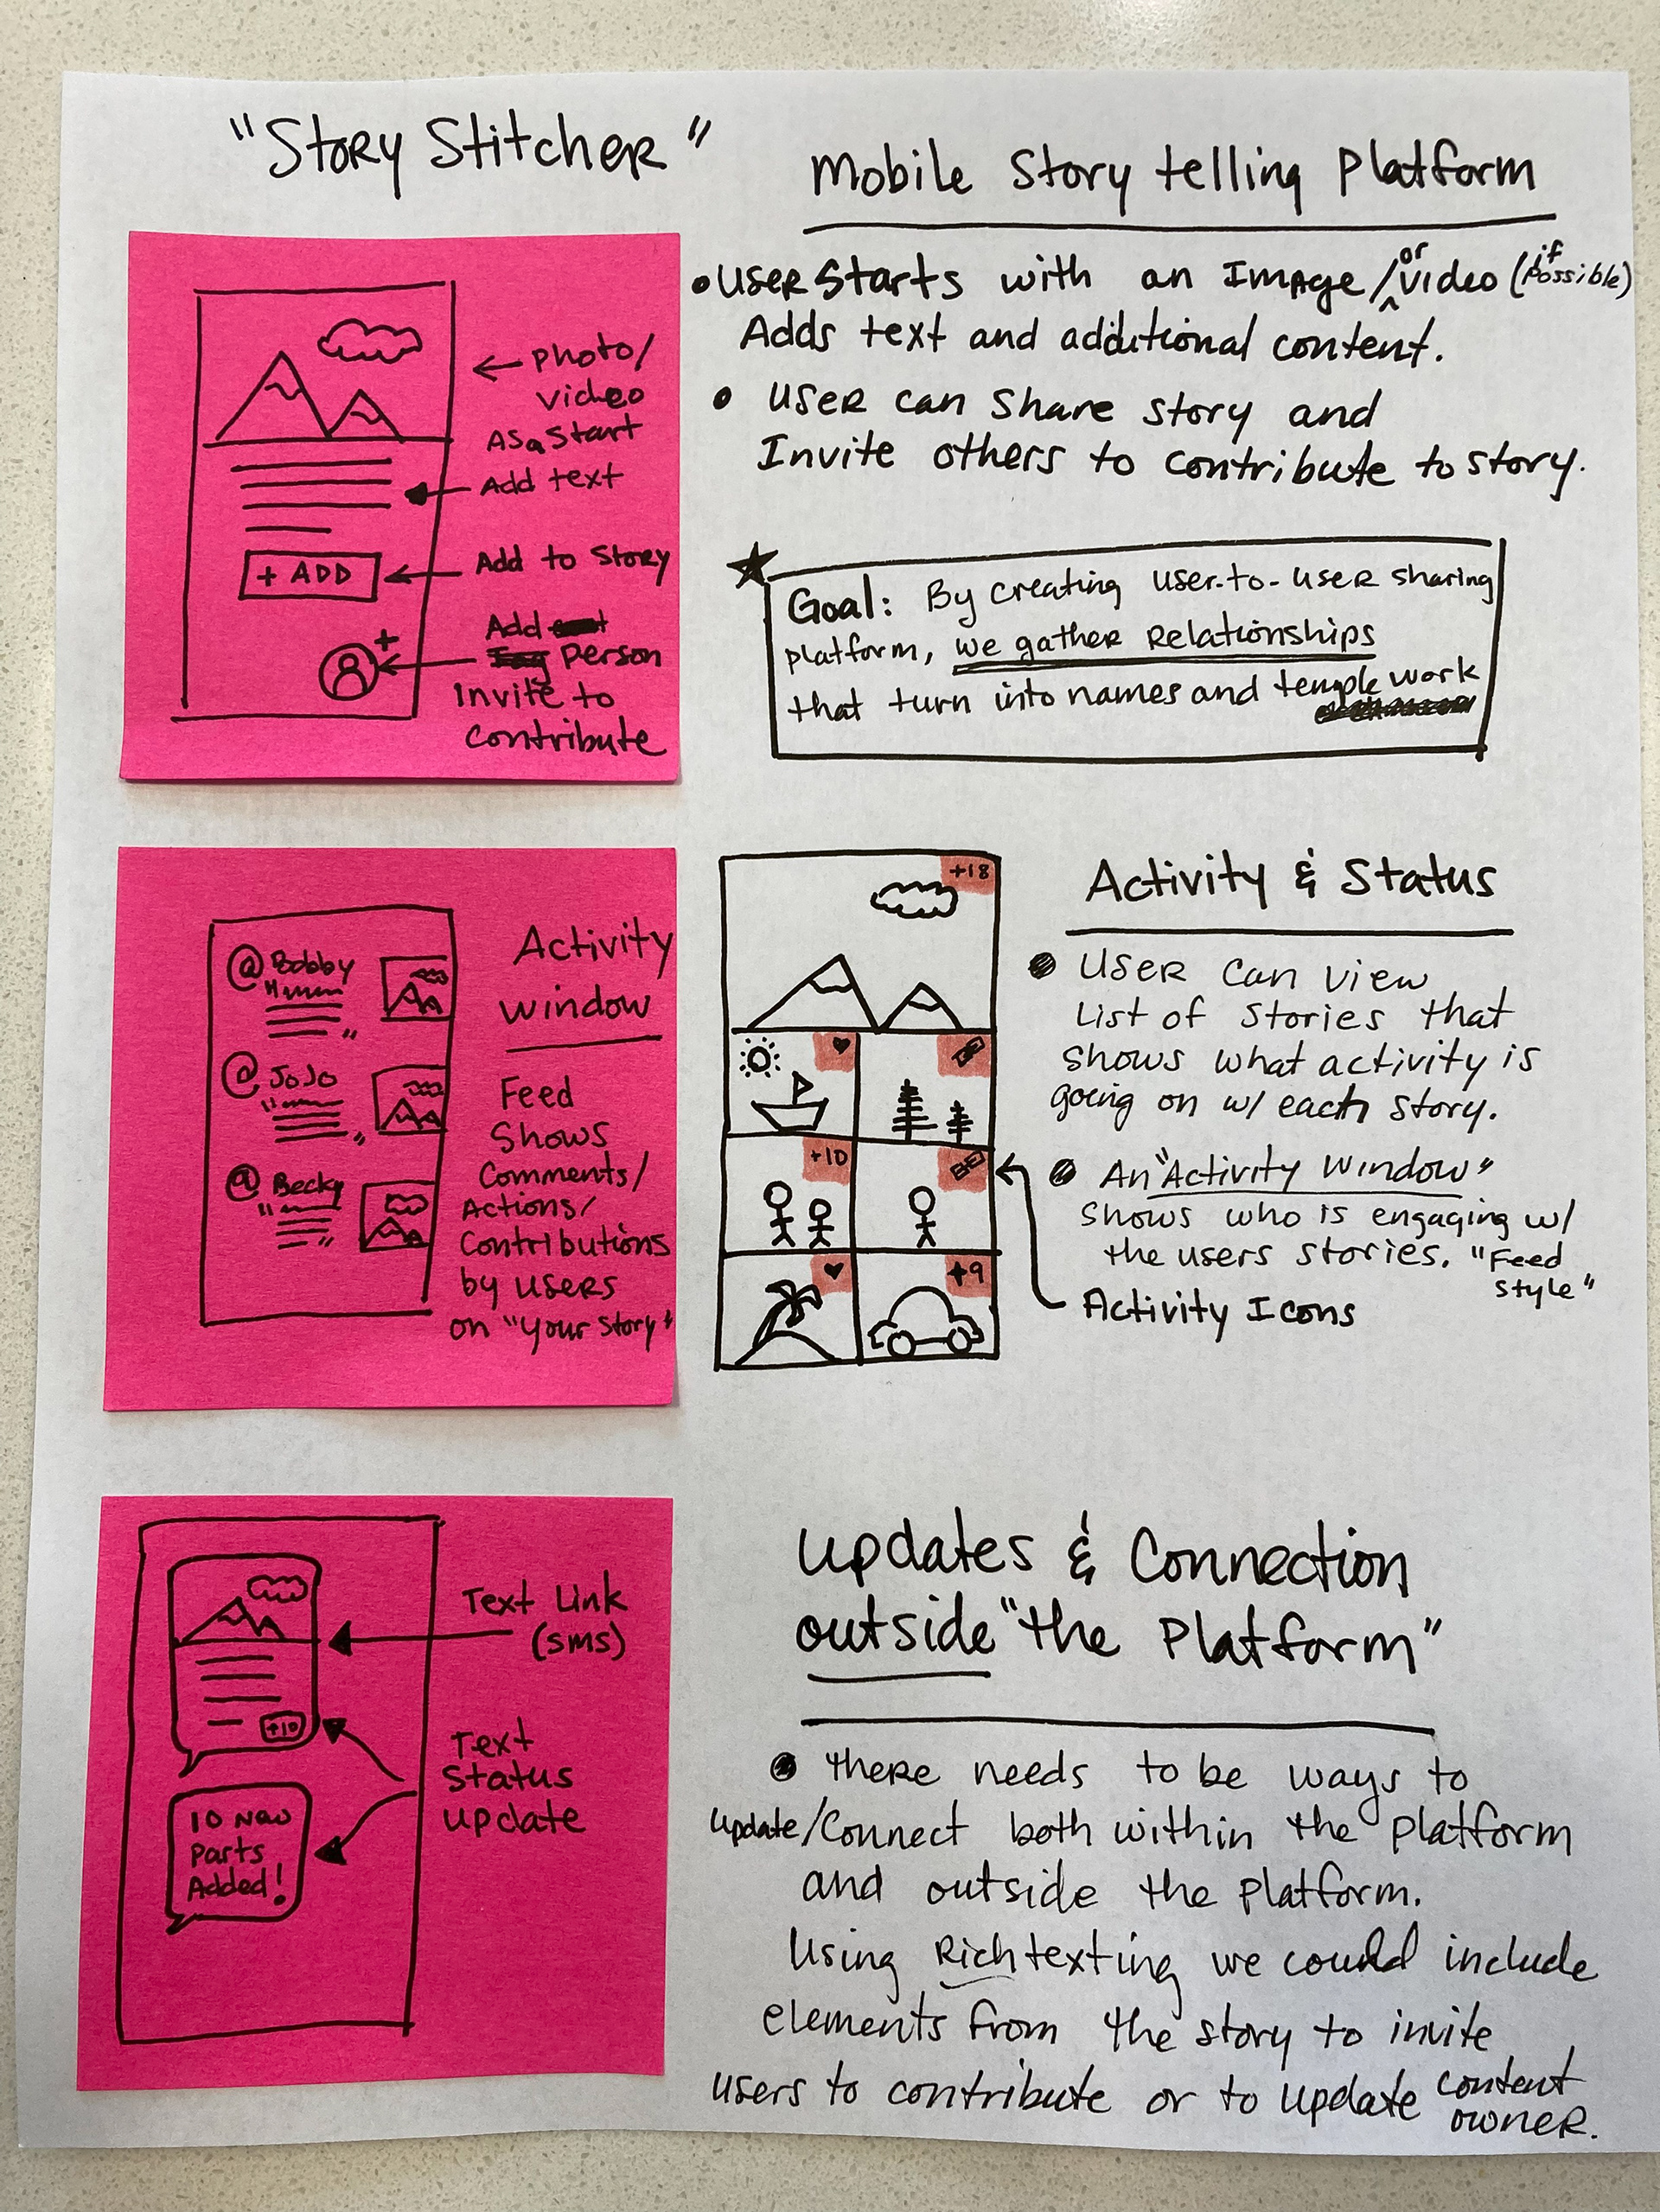 "Story Stitcher"
Mobile Story telling Platform
• User Starts with an Image/or Video (if Possible)
Adds text and additional content.
• User can share story and
Invite others to contribute to story.
← Photo/
video
As a Start
Add text
+ ADD
Add to Story
Add
person
+
Invite to
contribute
Goal: By creating user-to-user sharing
platform, we gather Relationships
that turn into names and temple work
@Bobby
@JoJo
@Becky
Activity
Window
Feed
Shows
Comments/
Actions/
Contributions
by users
on "Your Story"
+18
+10
+9
Activity & Status
• User can view
List of Stories that
Shows what activity is
going on w/ each story.
• An "Activity Window"
Shows who is engaging w/
the users stories. "Feed
Style"
Activity Icons
+10
10 New
Parts
Added!
Text Link
(sms)
Text
Status
update
Updates & Connection
outside "the Platform"
• there needs to be ways to
update/Connect both within the platform
and outside the platform.
Using Rich texting we could include
elements from the story to invite
users to contribute or to update content
owner.